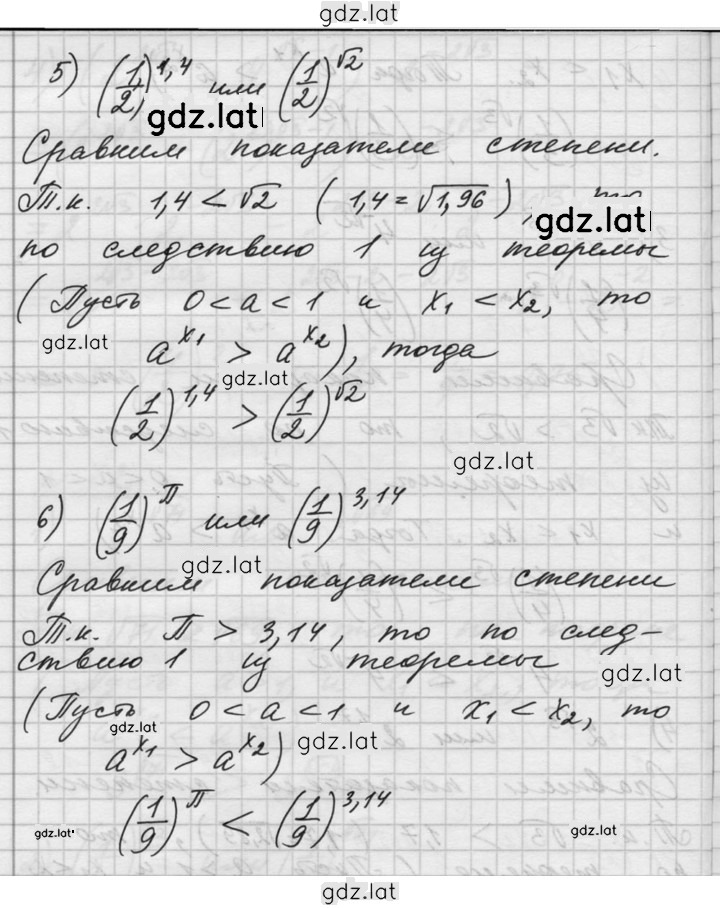 gdz.lat
5) (1/2)^1,4 или (1/2)^√2
gdz.lat
Сравним показатели степени.
Т.к. 1,4 < √2 ( 1,4 = √1,96 ) , то
gdz.lat
по следствию 1 из теоремы
( Пусть 0 < a < 1 и x₁ < x₂, то
gdz.lat
a^x₁ > a^x₂), тогда
gdz.lat
(1/2)^1,4 > (1/2)^√2
gdz.lat
6) (1/9)^П или (1/9)^3,14
gdz.lat
Сравним показатели степени
Т.к. П > 3,14, то по след-
ствию 1 из теоремы
gdz.lat
(Пусть 0 < a < 1 и x₁ < x₂, то
gdz.lat
a^x₁ > a^x₂)
gdz.lat
(1/9)^П < (1/9)^3,14
gdz.lat
gdz.lat
gdz.lat